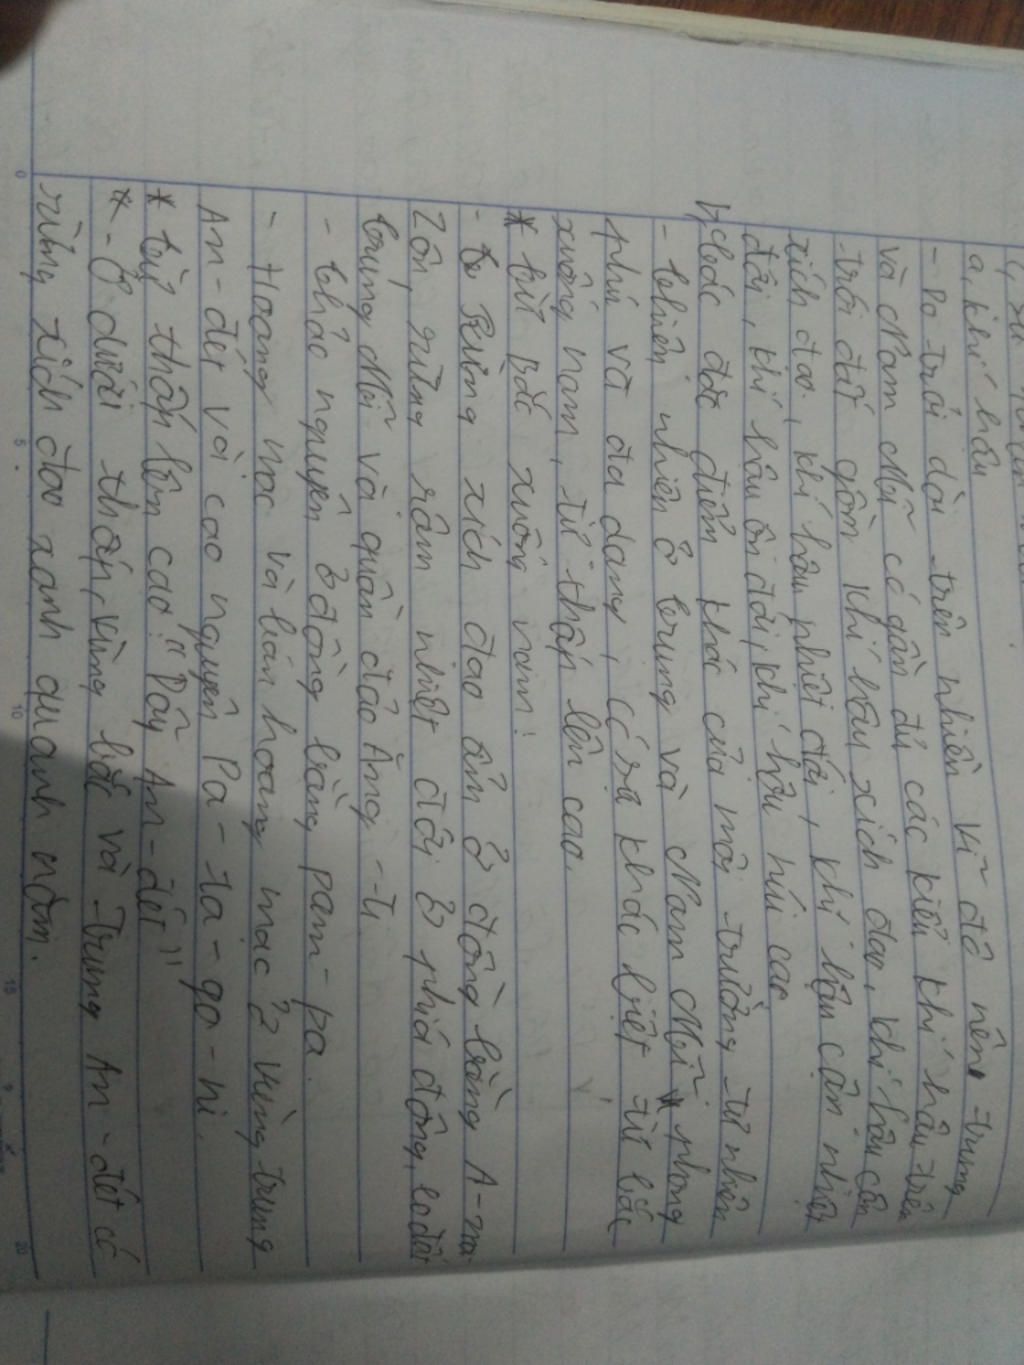 a, khí hậu
- Do trải dài trên nhiều vĩ độ nên trung
và Nam Mĩ có gần đủ các kiểu khí hậu trên
trái đất gồm khí hậu xích đạo, khí hậu cận
xích đạo, khí hậu nhiệt đới, khí hậu cận nhiệt
đới, khí hậu ôn đới, khí hậu núi cao
b, các đặc điểm khác của môi trường tự nhiên
- thiên nhiên ở trung và Nam Mĩ phong
phú và đa dạng, có sự khác biệt từ bắc
xuống nam, từ thấp lên cao.
* từ Bắc xuống nam:
- Rừng xích đạo ẩm ở đồng bằng A-ma
Zôn, rừng rậm nhiệt đới ở phía đông, eo đất
trung Mĩ và quần đảo Ăng-ti
- thảo nguyên ở đồng bằng pam-pa.
- Hoang mạc và bán hoang mạc ở vùng trung
An-đét và cao nguyên Pa-ta-gô-ni.
* từ thấp lên cao: "Dãy An-đét"
* - Ở dưới thấp, vùng bắc và Trung An-đét có
rừng xích đạo xanh quanh năm.